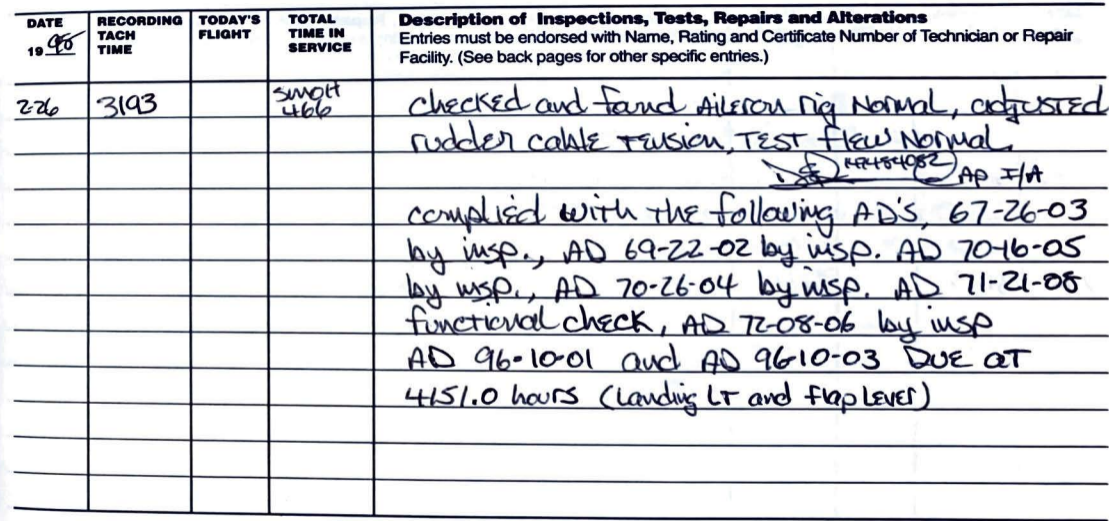 DATE
19 98
RECORDING TACH TIME
TODAY'S FLIGHT
TOTAL TIME IN SERVICE
Description of Inspections, Tests, Repairs and Alterations
Entries must be endorsed with Name, Rating and Certificate Number of Technician or Repair
Facility. (See back pages for other specific entries.)
2-26 3193 SMOH checked and found Aileron rig Normal, adjusted
466 rudder cable tension, TEST flew Normal.
AP I/A
complied with the following AD'S, 67-26-03
by insp., AD 69-22-02 by insp. AD 70-16-05
by insp., AD 70-26-04 by insp. AD 71-21-08
functional check, AD 72-08-06 by insp
AD 96-10-01 and AD 96-10-03 DUE at
4151.0 hours (Landing LT and flap LEVER)